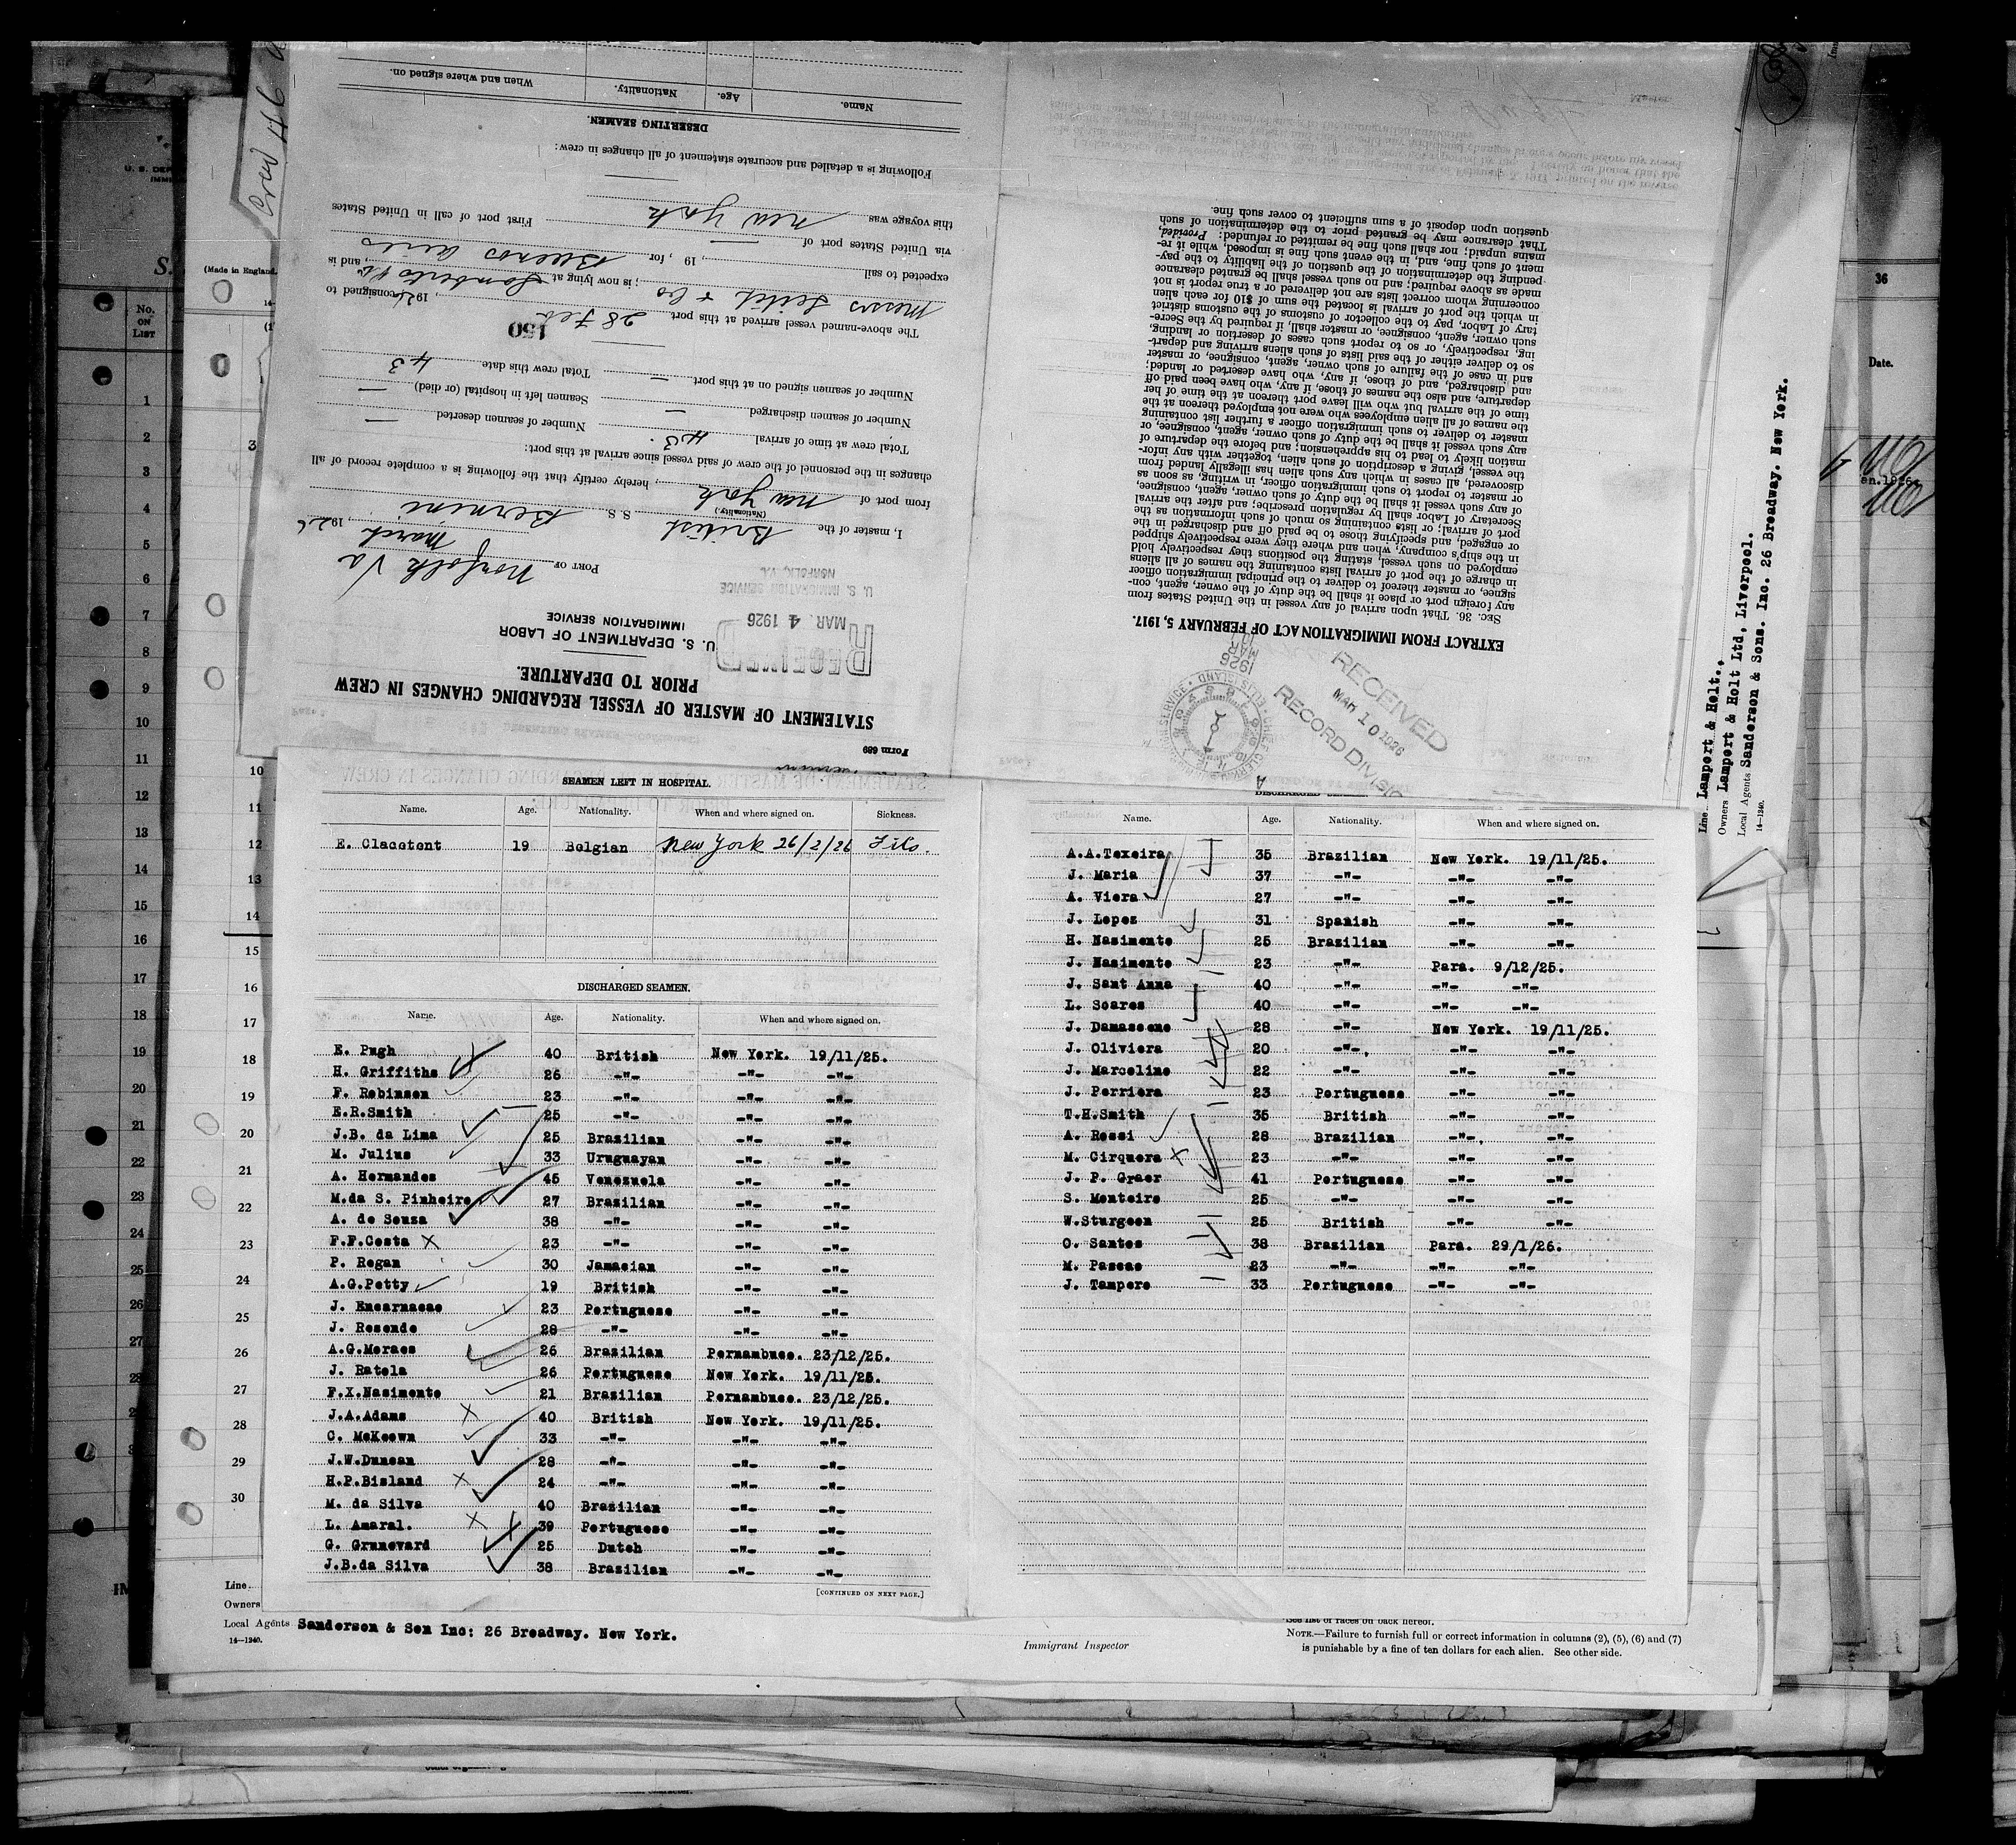 Form 689
STATEMENT OF MASTER OF VESSEL REGARDING CHANGES IN CREW
PRIOR TO DEPARTURE.
U. S. DEPARTMENT OF LABOR
IMMIGRATION SERVICE
RECEIVED
MAR. 4 1926
U. S. IMMIGRATION SERVICE
NORFOLK, VA.
PORT OF Norfolk Va
March, 1926
I, master of the British S. S. Bernini
(Nationality.)
from port of New York, hereby certify that the following is a complete record of all
changes in the personnel of the crew of said vessel since arrival at this port:
Total crew at time of arrival 43. Number of seamen deserted —
Number of seamen discharged — Seamen left in hospital (or died) —
Number of seamen signed on at this port — Total crew this date 43
150
The above-named vessel arrived at this port 28 Feb, 1926, consigned to
Messrs Leitch & Co; is now lying at Lamberts Pt, and is
expected to sail , 19 , for Buenos Aires
via United States port of — First port of call in United States
this voyage was New York
Following is a detailed and accurate statement of all changes in crew:
DESERTING SEAMEN.
Name. Age. Nationality. When and where signed on.
EXTRACT FROM IMMIGRATION ACT OF FEBRUARY 5, 1917.
Sec. 36. That upon arrival of any vessel in the United States from
any foreign port or place it shall be the duty of the owner, agent, con-
signee, or master thereof to deliver to the principal immigration officer
in charge of the port of arrival lists containing the names of all aliens
employed on such vessel, stating the positions they respectively hold
in the ship's company, when and where they were respectively shipped
or engaged, and specifying those to be paid off and discharged in the
port of arrival; or lists containing so much of such information as the
Secretary of Labor shall by regulation prescribe; and after the arrival
of any such vessel it shall be the duty of such owner, agent, consignee,
or master to report to such immigration officer, in writing, as soon as
discovered, all cases in which any such alien has illegally landed from
the vessel, giving a description of such alien, together with any infor-
mation likely to lead to his apprehension; and before the departure of
any such vessel it shall be the duty of such owner, agent, consignee, or
master to deliver to such immigration officer a further list containing
the names of all alien employees who were not employed thereon at the
time of the arrival but who will leave port thereon at the time of her
departure, and also the names of those, if any, who have been paid off
and discharged, and of those, if any, who have deserted or landed;
and in case of the failure of such owner, agent, consignee, or master
so to deliver either of the said lists of such aliens arriving and depart-
ing, respectively, or so to report such cases of desertion or landing,
such owner, agent, consignee, or master shall, if required by the Secre-
tary of Labor, pay to the collector of customs of the customs district
in which the port of arrival is located the sum of $10 for each alien
concerning whom correct lists are not delivered or a true report is not
made as above required; and no such vessel shall be granted clearance
pending the determination of the question of the liability to the pay-
ment of such fine, and, in the event such fine is imposed, while it re-
mains unpaid; nor shall such fine be remitted or refunded: Provided,
That clearance may be granted prior to the determination of such
question upon deposit of a sum sufficient to cover such fine.
RECEIVED
MAR 10 1926
RECORD DIVISION
SEAMEN LEFT IN HOSPITAL.
Name. Age. Nationality. When and where signed on. Sickness.
E. Clacetent 19 Belgian New York 26/2/26
DISCHARGED SEAMEN.
Name. Age. Nationality. When and where signed on.
E. Pugh 40 British New York. 19/11/25.
H. Griffiths 26 -"- -"- -"-
F. Robinson 23 -"- -"- -"-
E.R.Smith 25 -"- -"- -"-
J.B. da Lima 25 Brazilian -"- -"-
M. Julius 33 Uruguayan -"- -"-
A. Hernandes 45 Venezuela -"- -"-
M.da S. Pinheiro 27 Brazilian -"- -"-
A. de Souza 38 -"- -"- -"-
F.F.Costa 23 -"- -"- -"-
P. Regan 30 Jamacian -"- -"-
A.G.Petty 19 British -"- -"-
J. Encarnacao 23 Portuguese -"- -"-
J. Resende 28 -"- -"- -"-
A.G.Moraes 26 Brazilian Pernambuco. 23/12/25.
J. Ratola 26 Portuguese New York. 19/11/25.
F.X.Nasimento 21 Brazilian Pernambuco. 23/12/25.
J.A.Adams 40 British New York. 19/11/25.
C. McKeown 33 -"- -"- -"-
J.W.Duncan 28 -"- -"- -"-
H.P.Bisland 24 -"- -"- -"-
M. da Silva 40 Brazilian -"- -"-
L. Amaral. 39 Portuguese -"- -"-
G. Grunevard 25 Dutch -"- -"-
J.B.da Silva 38 Brazilian -"- -"-
[CONTINUED ON NEXT PAGE.]
Name. Age. Nationality. When and where signed on.
A.A.Texeira 35 Brazilian New York. 19/11/25.
J. Maria 37 -"- -"- -"-
A. Viera 27 -"- -"- -"-
J. Lopez 31 Spanish -"- -"-
H. Nasimento 25 Brazilian -"- -"-
J. Nasimento 23 -"- Para. 9/12/25.
J. Sant Anna 40 -"- -"- -"-
L. Soares 40 -"- -"- -"-
J. Damasceno 28 -"- New York. 19/11/25.
J. Oliviera 20 -"-. -"- -"-
J. Marcoline 22 -"- -"- -"-
J. Perriera 23 Portuguese -"- -"-
T.H.Smith 35 British -"- -"-
A. Rossi 28 Brazilian -"-. -"-
M. Cirquera 23 -"- -"- -"-
J. P. Graer 41 Portuguese -"- -"-
S. Monteiro 25 -"- -"- -"-
W.Sturgeon 25 British -"- -"-
O. Santos 38 Brazilian Para. 29/1/26.
M. Pascao 23 -"- -"- -"-
J. Tampero 33 Portuguese -"- -"-
Line.
Owners
Local Agents Sanderson & Son Inc: 26 Broadway. New York.
14—1240.
Immigrant Inspector
See list of races on back hereof.
NOTE.—Failure to furnish full or correct information in columns (2), (5), (6) and (7)
is punishable by a fine of ten dollars for each alien. See other side.
Line Lampert & Holt.,
Owners Lampert & Holt Ltd, Liverpool.
Local Agents Sanderson & Sons. Inc. 26 Broadway. New York.
14—1240.
Crew 46
(Made in England.
No. ON LIST
36
Date.